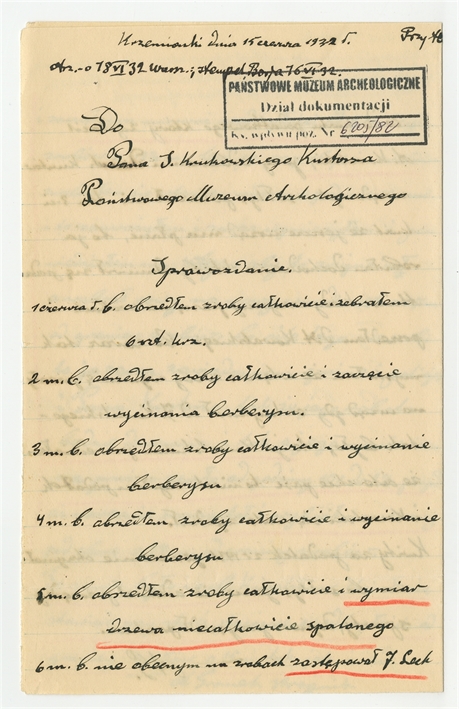 Krzemionki dnia 15 czerwca 1932 r.
Przy
Arz.-o 18 VI 32 wam.; stempel Borja 16 VI 32.
PAŃSTWOWE MUZEUM ARCHEOLOGICZNE
Dział dokumentacji
Ks. wpływu poz. Nr 6205/82
Do
Pana S. Krukowskiego Kustorza
Państwowego Muzeum Archologicznego
Sprawozdanie.
1 czerwca r. b. obrzedłem zroby całkowicie i zebrałem
6 krz.
2 m. b. obrzedłem zroby całkowicie i zaczęcie
wycinania berberysu.
3 m. b. obrzedłem zroby całkowicie i wycinanie
berberysu
4 m. b. obrzedłem zroby całkowicie i wycinanie
berberysu
5 m. b. obrzedłem zroby całkowicie i wymiar
drzewa niecałkowicie spalonego
6 m. b. nie obecnym na zrobach zastępował J. Lech